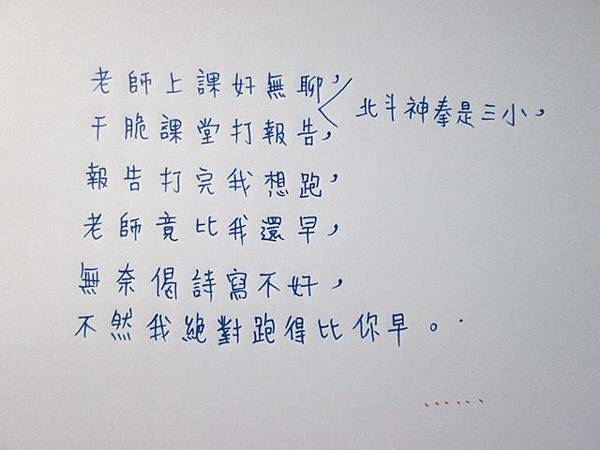 老師上課好無聊，
北斗神拳是三小，
干脆課堂打報告，
報告打完我想跑，
老師竟比我還早，
無奈偈詩寫不好，
不然我絕對跑得比你早。
......